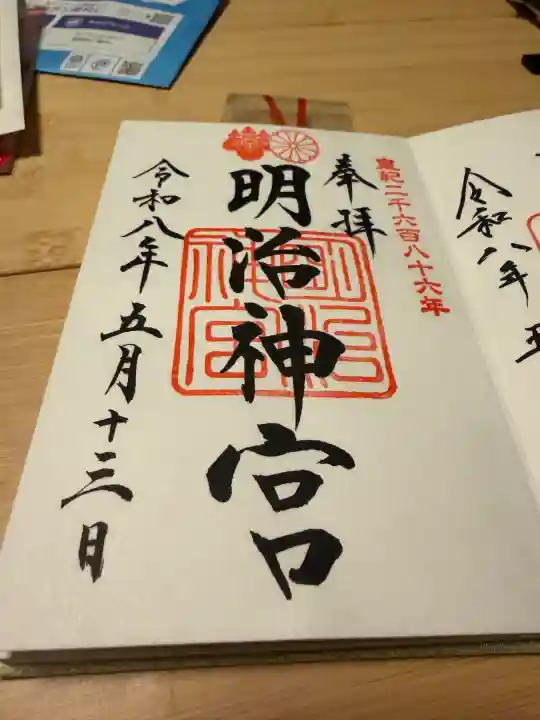 皇紀二千六百八十六年
奉拝
明治神宮
令和八年五月十三日
明治神宮
令和八年
五